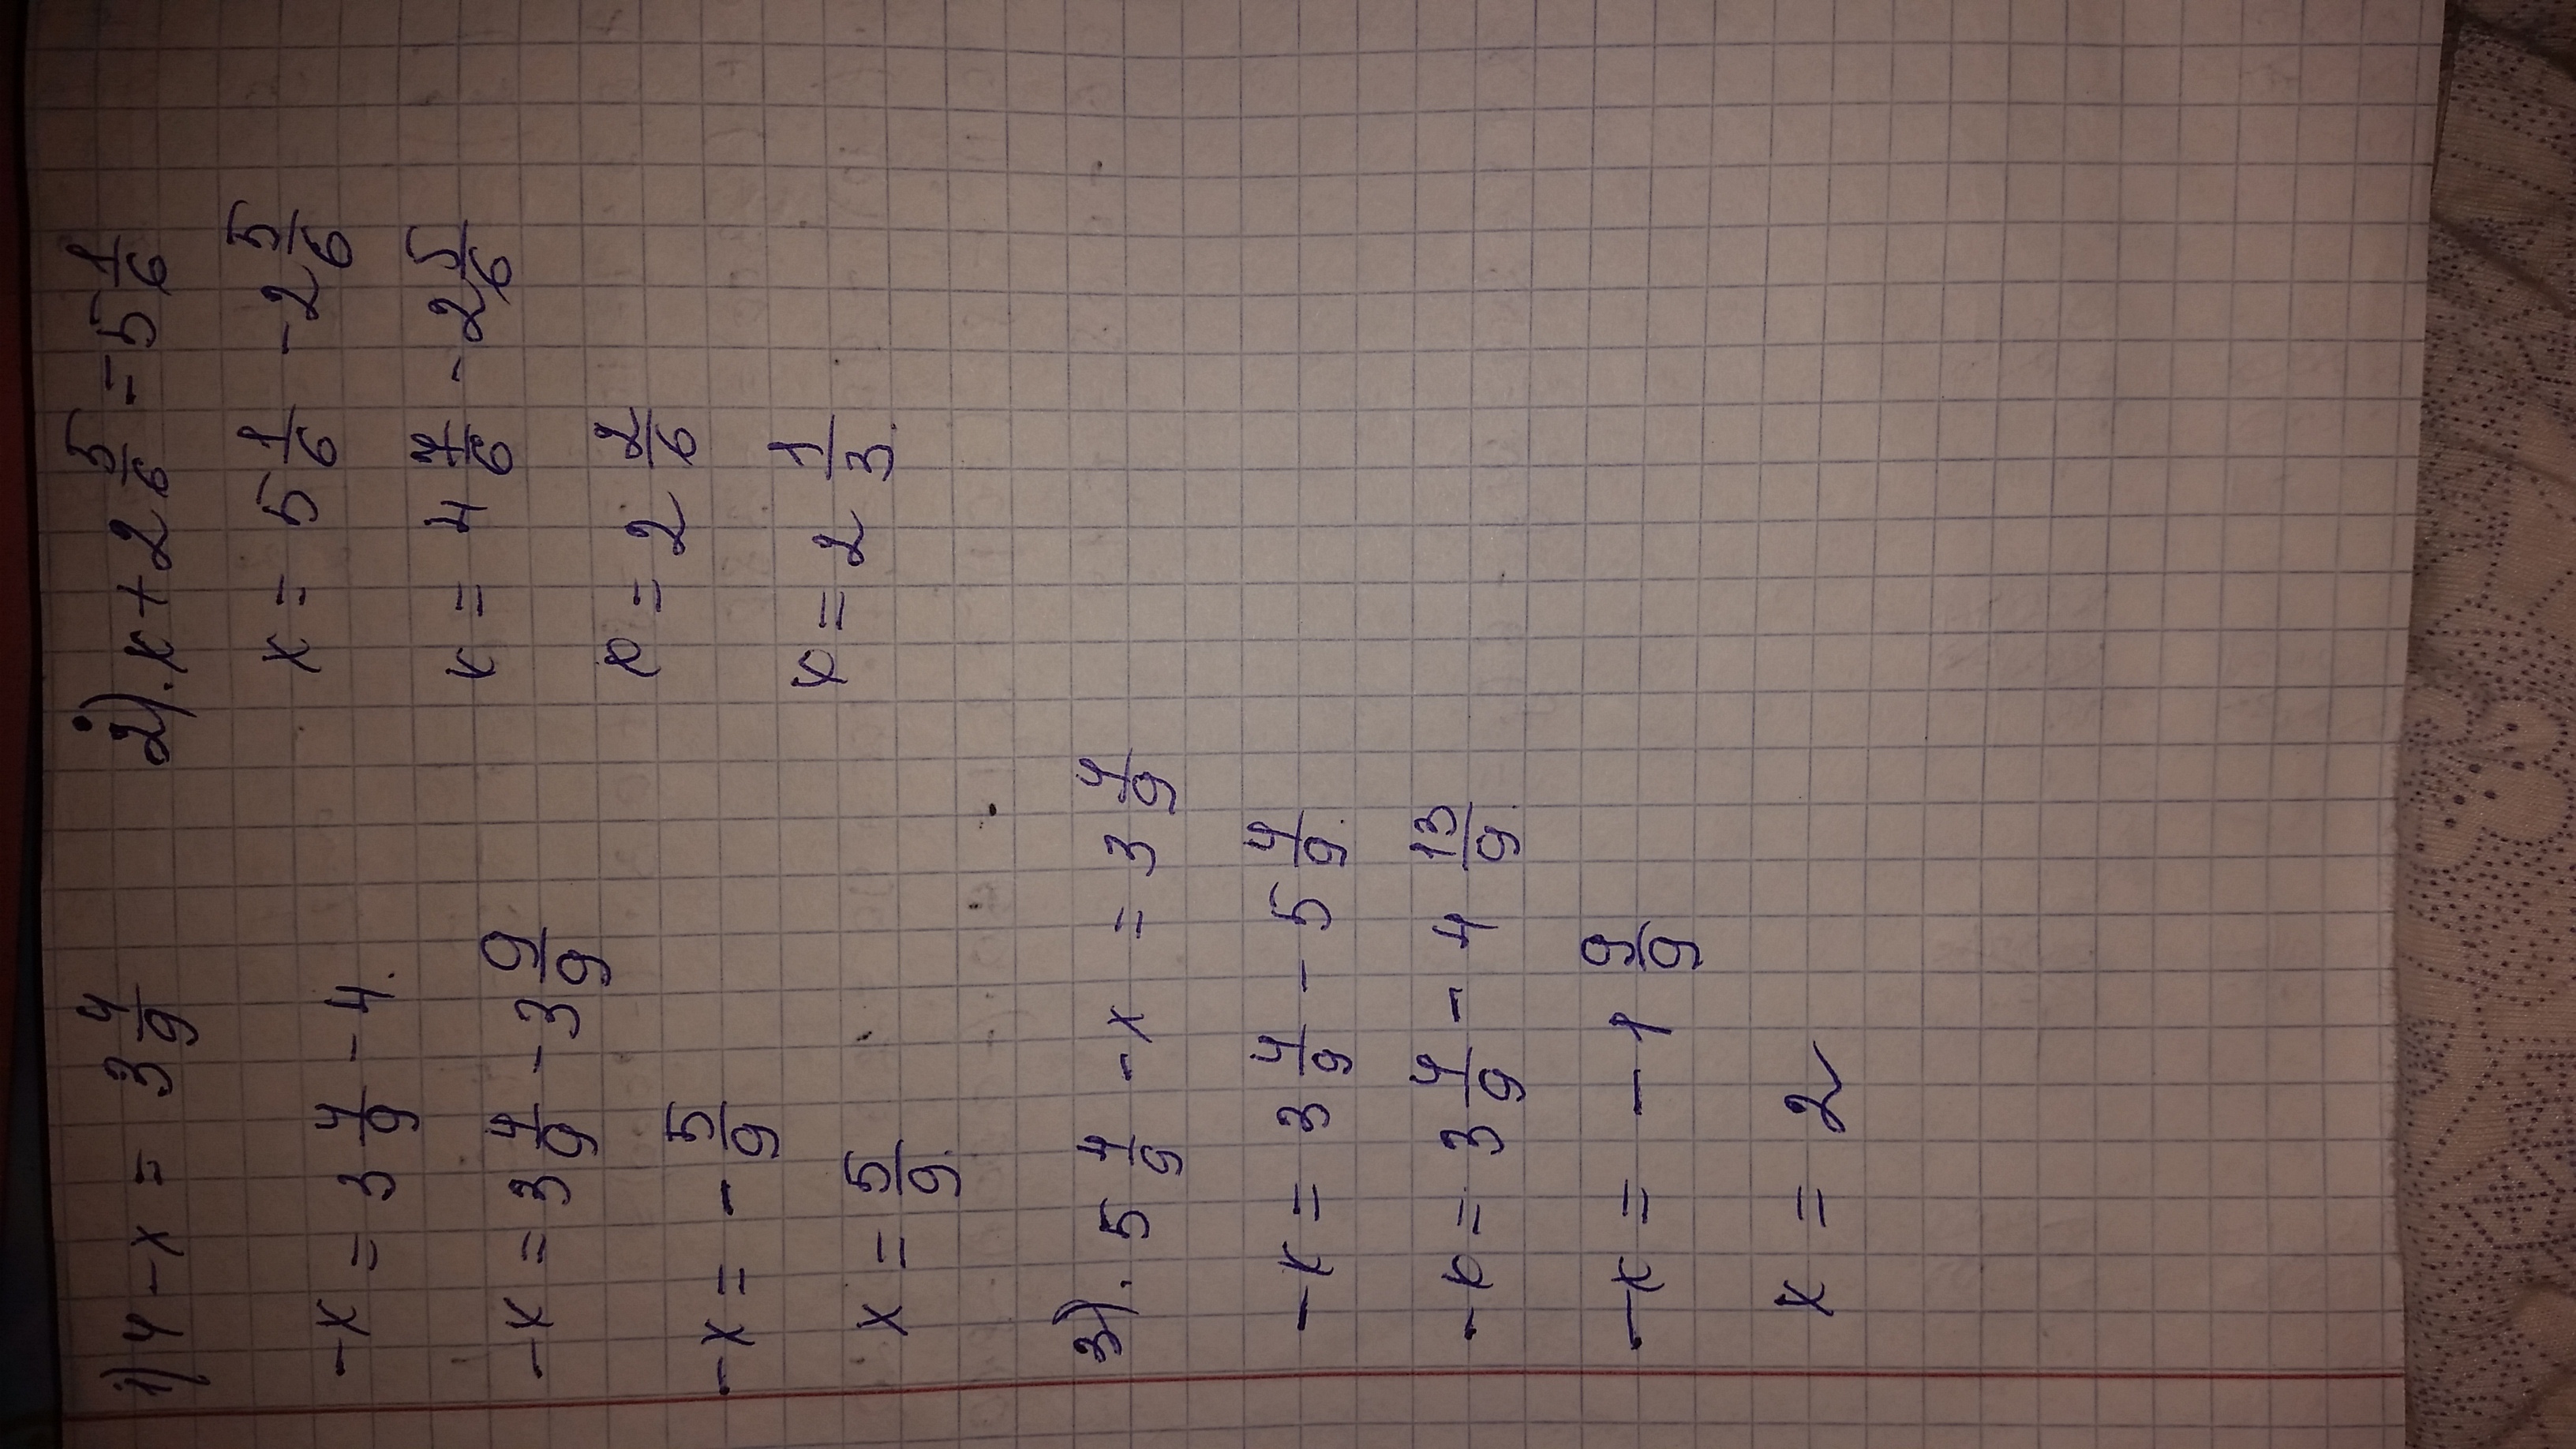 1) 4 - x = 3 4/9
-x = 3 4/9 - 4.
-x = 3 4/9 - 3 9/9
-x = - 5/9
x = 5/9.
2). x + 2 5/6 = 5 1/6
x = 5 1/6 - 2 5/6
x = 4 7/6 - 2 5/6
x = 2 2/6
x = 2 1/3.
3). 5 4/9 - x = 3 4/9
-x = 3 4/9 - 5 4/9.
-x = 3 4/9 - 4 13/9.
-x = - 1 9/9
x = 2